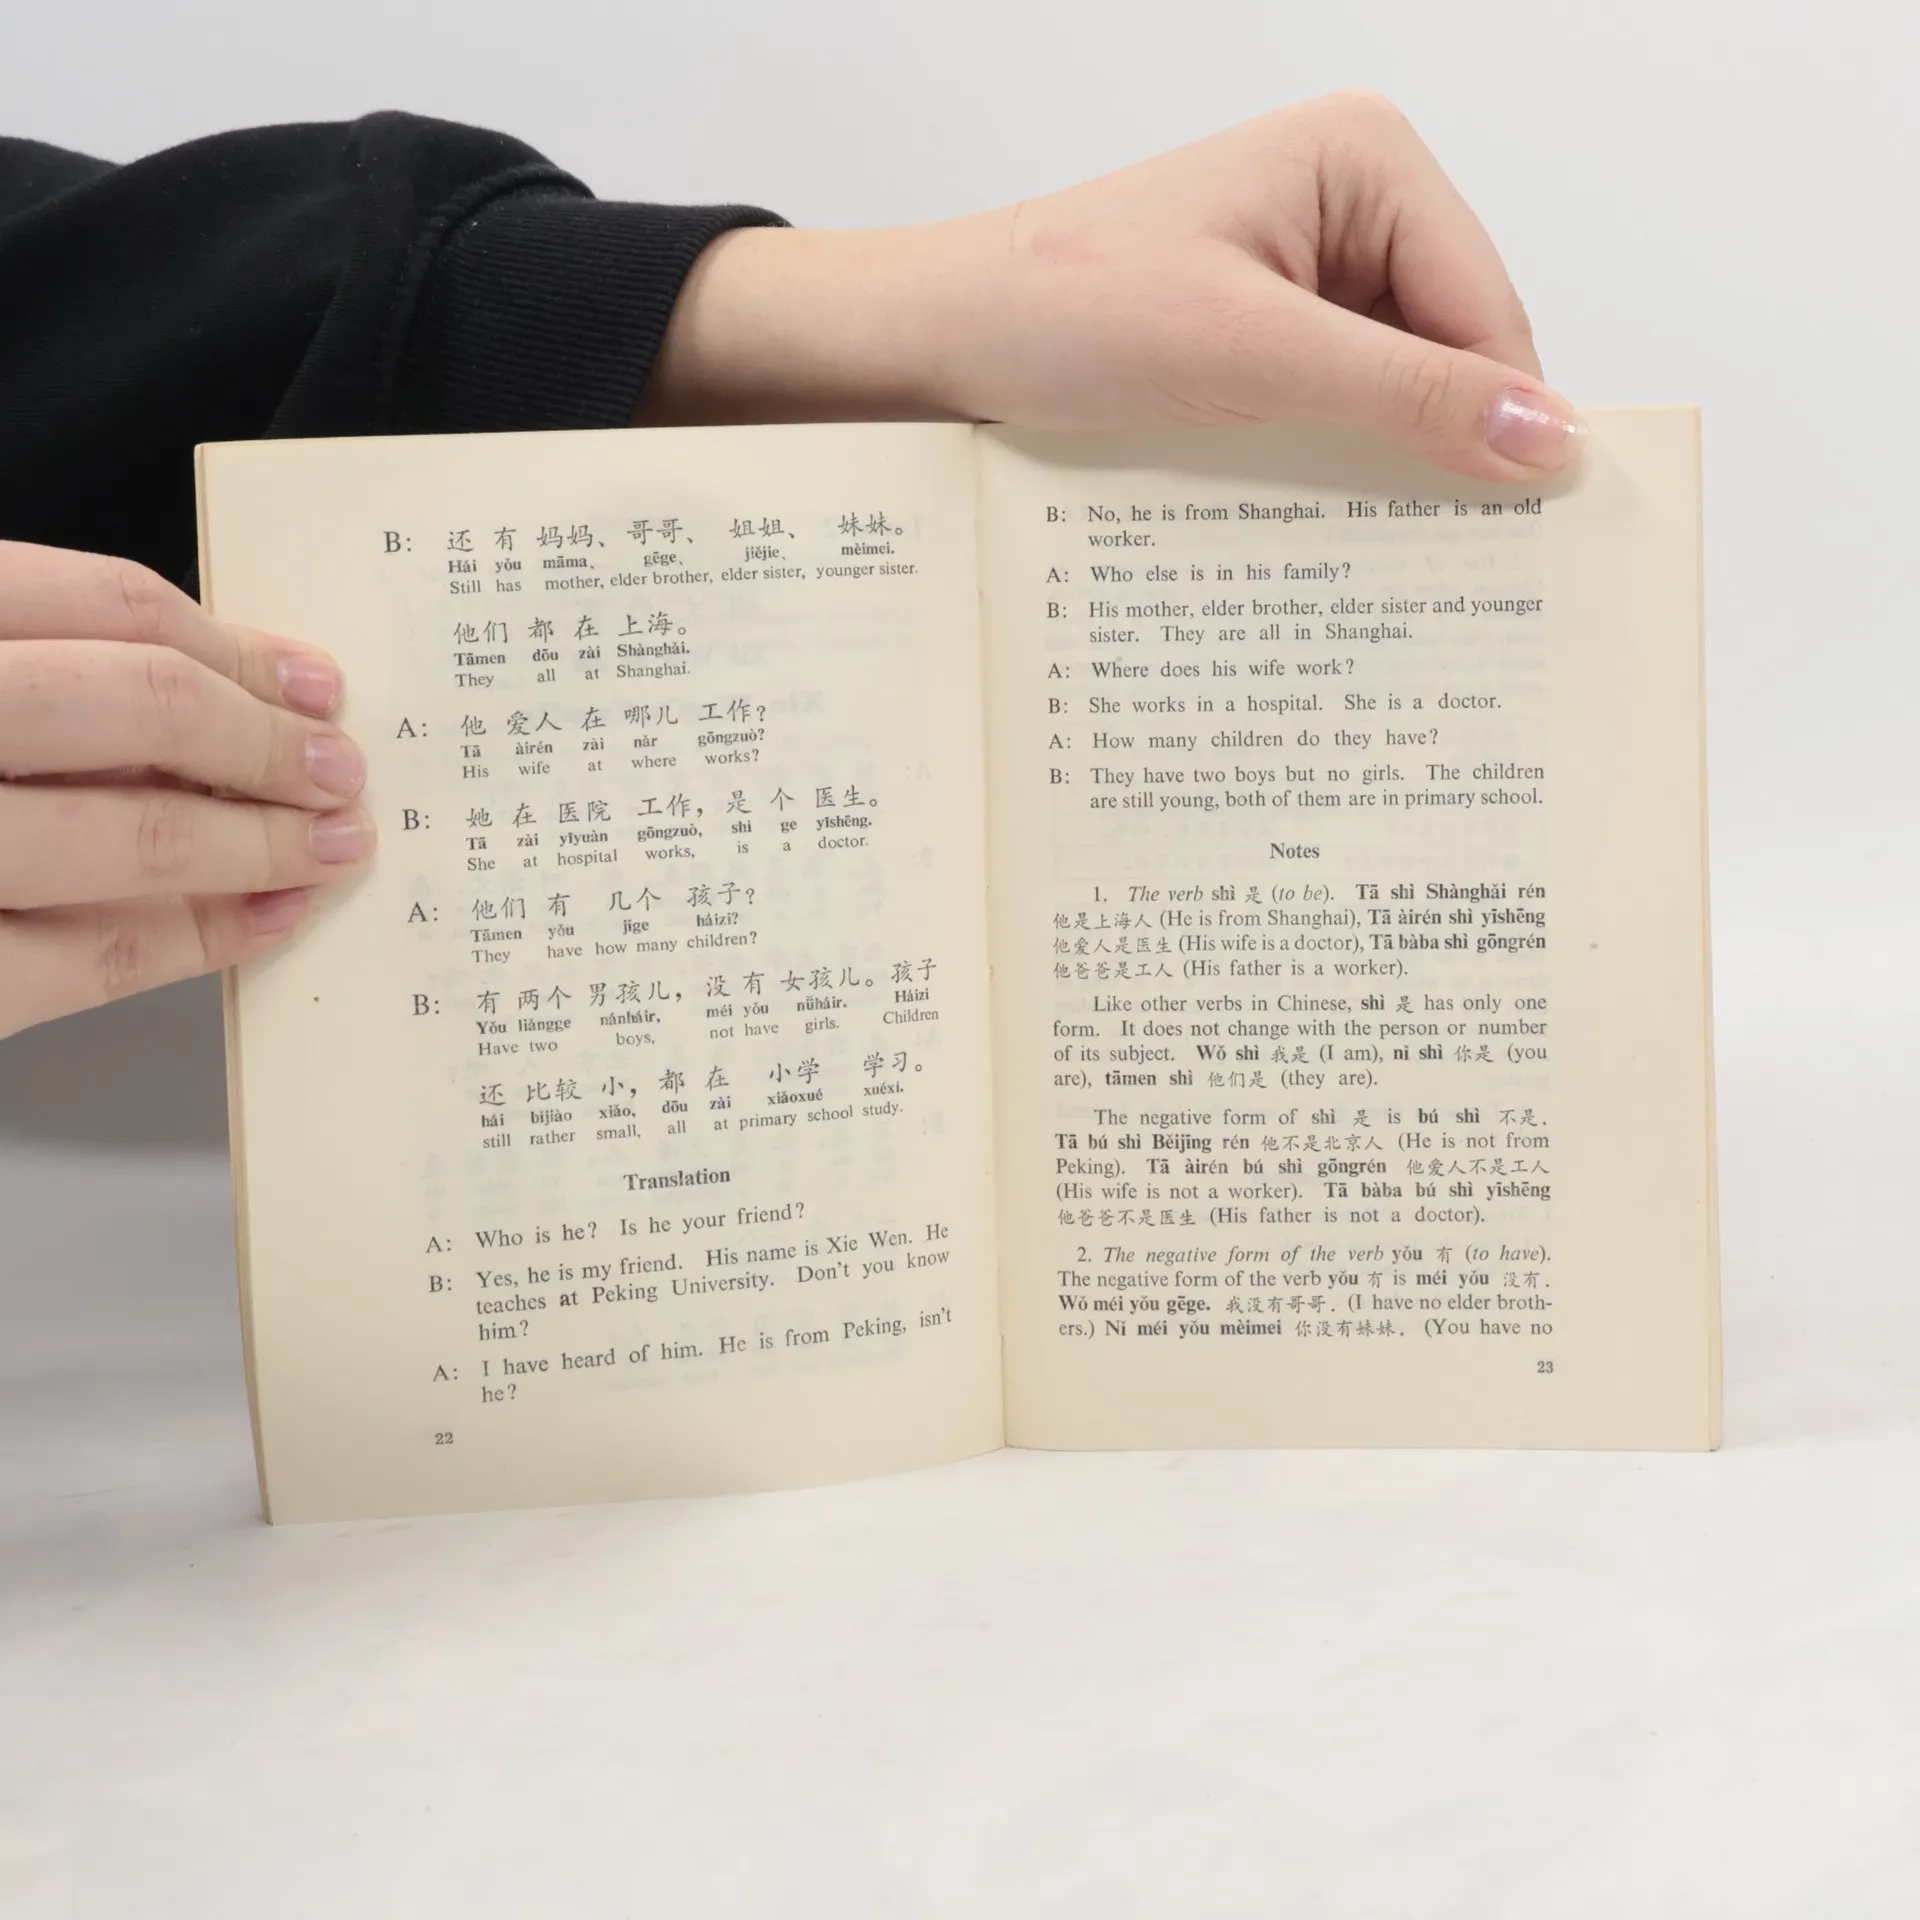 B: 还 有 妈妈、 哥哥、 姐姐、 妹妹。
Hái yǒu māma、 gēge、 jiějie、 mèimei.
Still has mother, elder brother, elder sister, younger sister.
他们 都 在 上海。
Tāmen dōu zài Shànghǎi.
They all at Shanghai.
A: 他 爱人 在 哪儿 工作?
Tā àirén zài nǎr gōngzuò?
His wife at where works?
B: 她 在 医院 工作, 是 个 医生。
Tā zài yīyuàn gōngzuò, shì ge yīshēng.
She at hospital works, is a doctor.
A: 他们 有 几个 孩子?
Tāmen yǒu jǐge háizi?
They have how many children?
B: 有 两个 男孩儿, 没 有 女孩儿。 孩子
Yǒu liǎngge nánháir, méi yǒu nǚháir. Háizi
Have two boys, not have girls. Children
还 比较 小, 都 在 小学 学习。
hái bǐjiào xiǎo, dōu zài xiǎoxué xuéxí.
still rather small, all at primary school study.
Translation
A: Who is he? Is he your friend?
B: Yes, he is my friend. His name is Xie Wen. He
teaches at Peking University. Don't you know
him?
A: I have heard of him. He is from Peking, isn't
he?
22
B: No, he is from Shanghai. His father is an old
worker.
A: Who else is in his family?
B: His mother, elder brother, elder sister and younger
sister. They are all in Shanghai.
A: Where does his wife work?
B: She works in a hospital. She is a doctor.
A: How many children do they have?
B: They have two boys but no girls. The children
are still young, both of them are in primary school.
Notes
1. The verb shì 是 (to be). Tā shì Shànghǎi rén
他是上海人 (He is from Shanghai), Tā àirén shì yīshēng
他爱人是医生 (His wife is a doctor), Tā bàba shì gōngrén
他爸爸是工人 (His father is a worker).
Like other verbs in Chinese, shì 是 has only one
form. It does not change with the person or number
of its subject. Wǒ shì 我是 (I am), nǐ shì 你是 (you
are), tāmen shì 他们是 (they are).
The negative form of shì 是 is bú shì 不是.
Tā bú shì Běijīng rén 他不是北京人 (He is not from
Peking). Tā àirén bú shì gōngrén 他爱人不是工人
(His wife is not a worker). Tā bàba bú shì yīshēng
他爸爸不是医生 (His father is not a doctor).
2. The negative form of the verb yǒu 有 (to have).
The negative form of the verb yǒu 有 is méi yǒu 没有.
Wǒ méi yǒu gēge. 我没有哥哥. (I have no elder broth-
ers.) Nǐ méi yǒu mèimei 你没有妹妹. (You have no
23